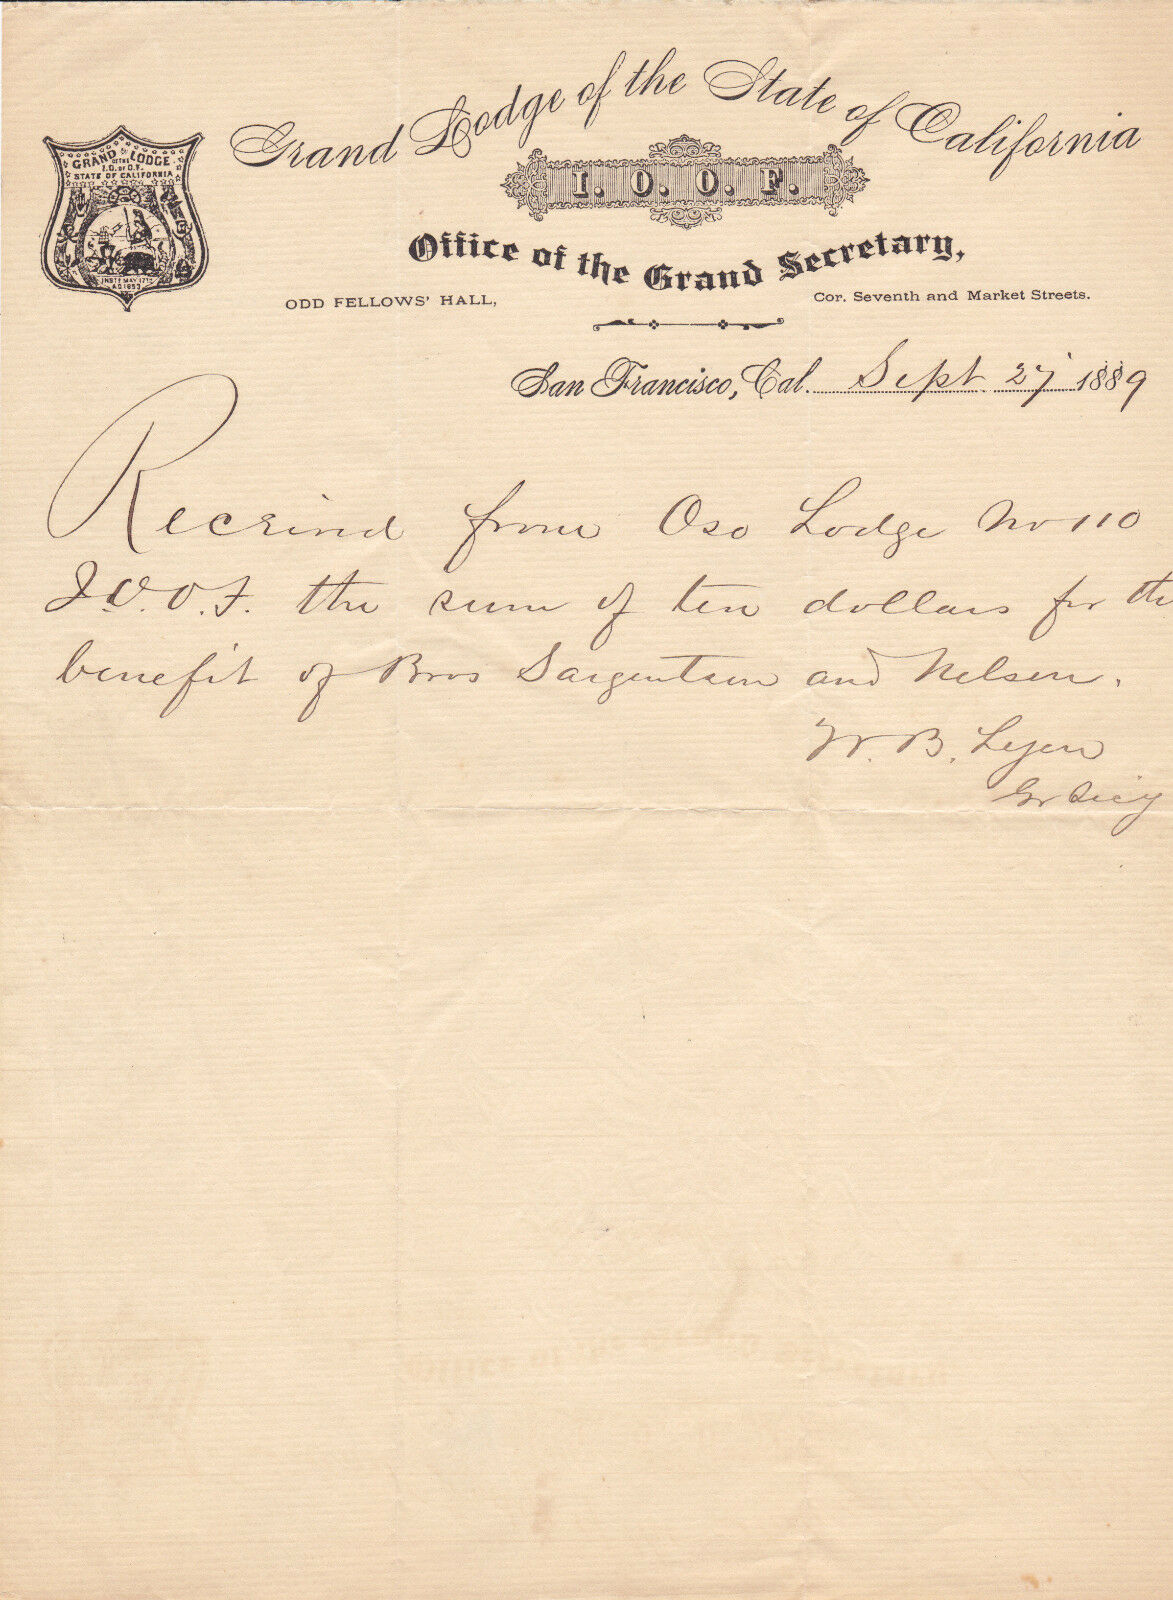 Grand Lodge of the State of California
GRAND LODGE
OF THE
I.O. OF O.F.
STATE OF CALIFORNIA
INSTD MAY 17TH
A.D. 1853
I. O. O. F.
Office of the Grand Secretary,
ODD FELLOWS' HALL,
Cor. Seventh and Market Streets.
San Francisco, Cal. Sept. 27 1889
Received from Oso Lodge No 110
I.O.O.F. the sum of ten dollars for the
benefit of Bros Sargentson and Nelson.
W. B. Lyon
Gr Secy